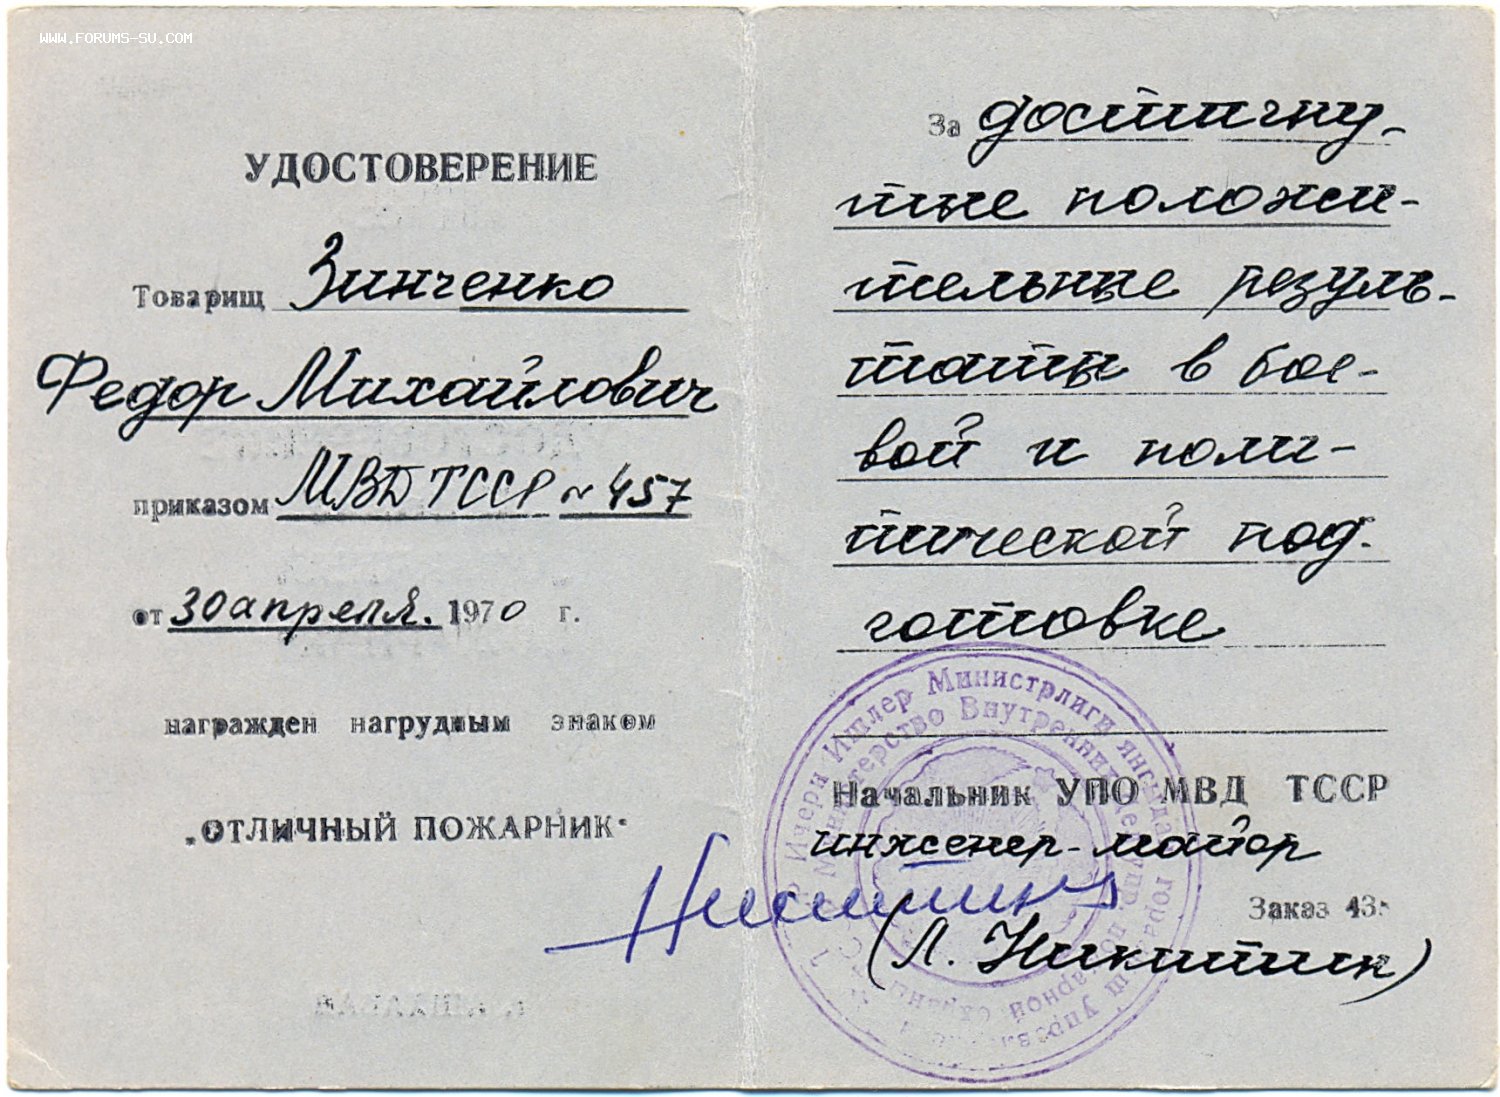 WWW.FORUMS-SU.COM
УДОСТОВЕРЕНИЕ
Товарищ Зинченко
Федор Михайлович
приказом МВД ТССР № 457
от 30 апреля. 1970 г.
награжден нагрудным знаком
„ОТЛИЧНЫЙ ПОЖАРНИК"
За достигну-
тые положи-
тельные резуль-
таты в бое-
вой и поли-
тической под-
готовке
Ичери Ишлер Министрлиги
Министерство Внутренних Дел
Начальник УПО МВД ТССР
инженер-майор
Никитин
Заказ 43
(Л. Никитин)